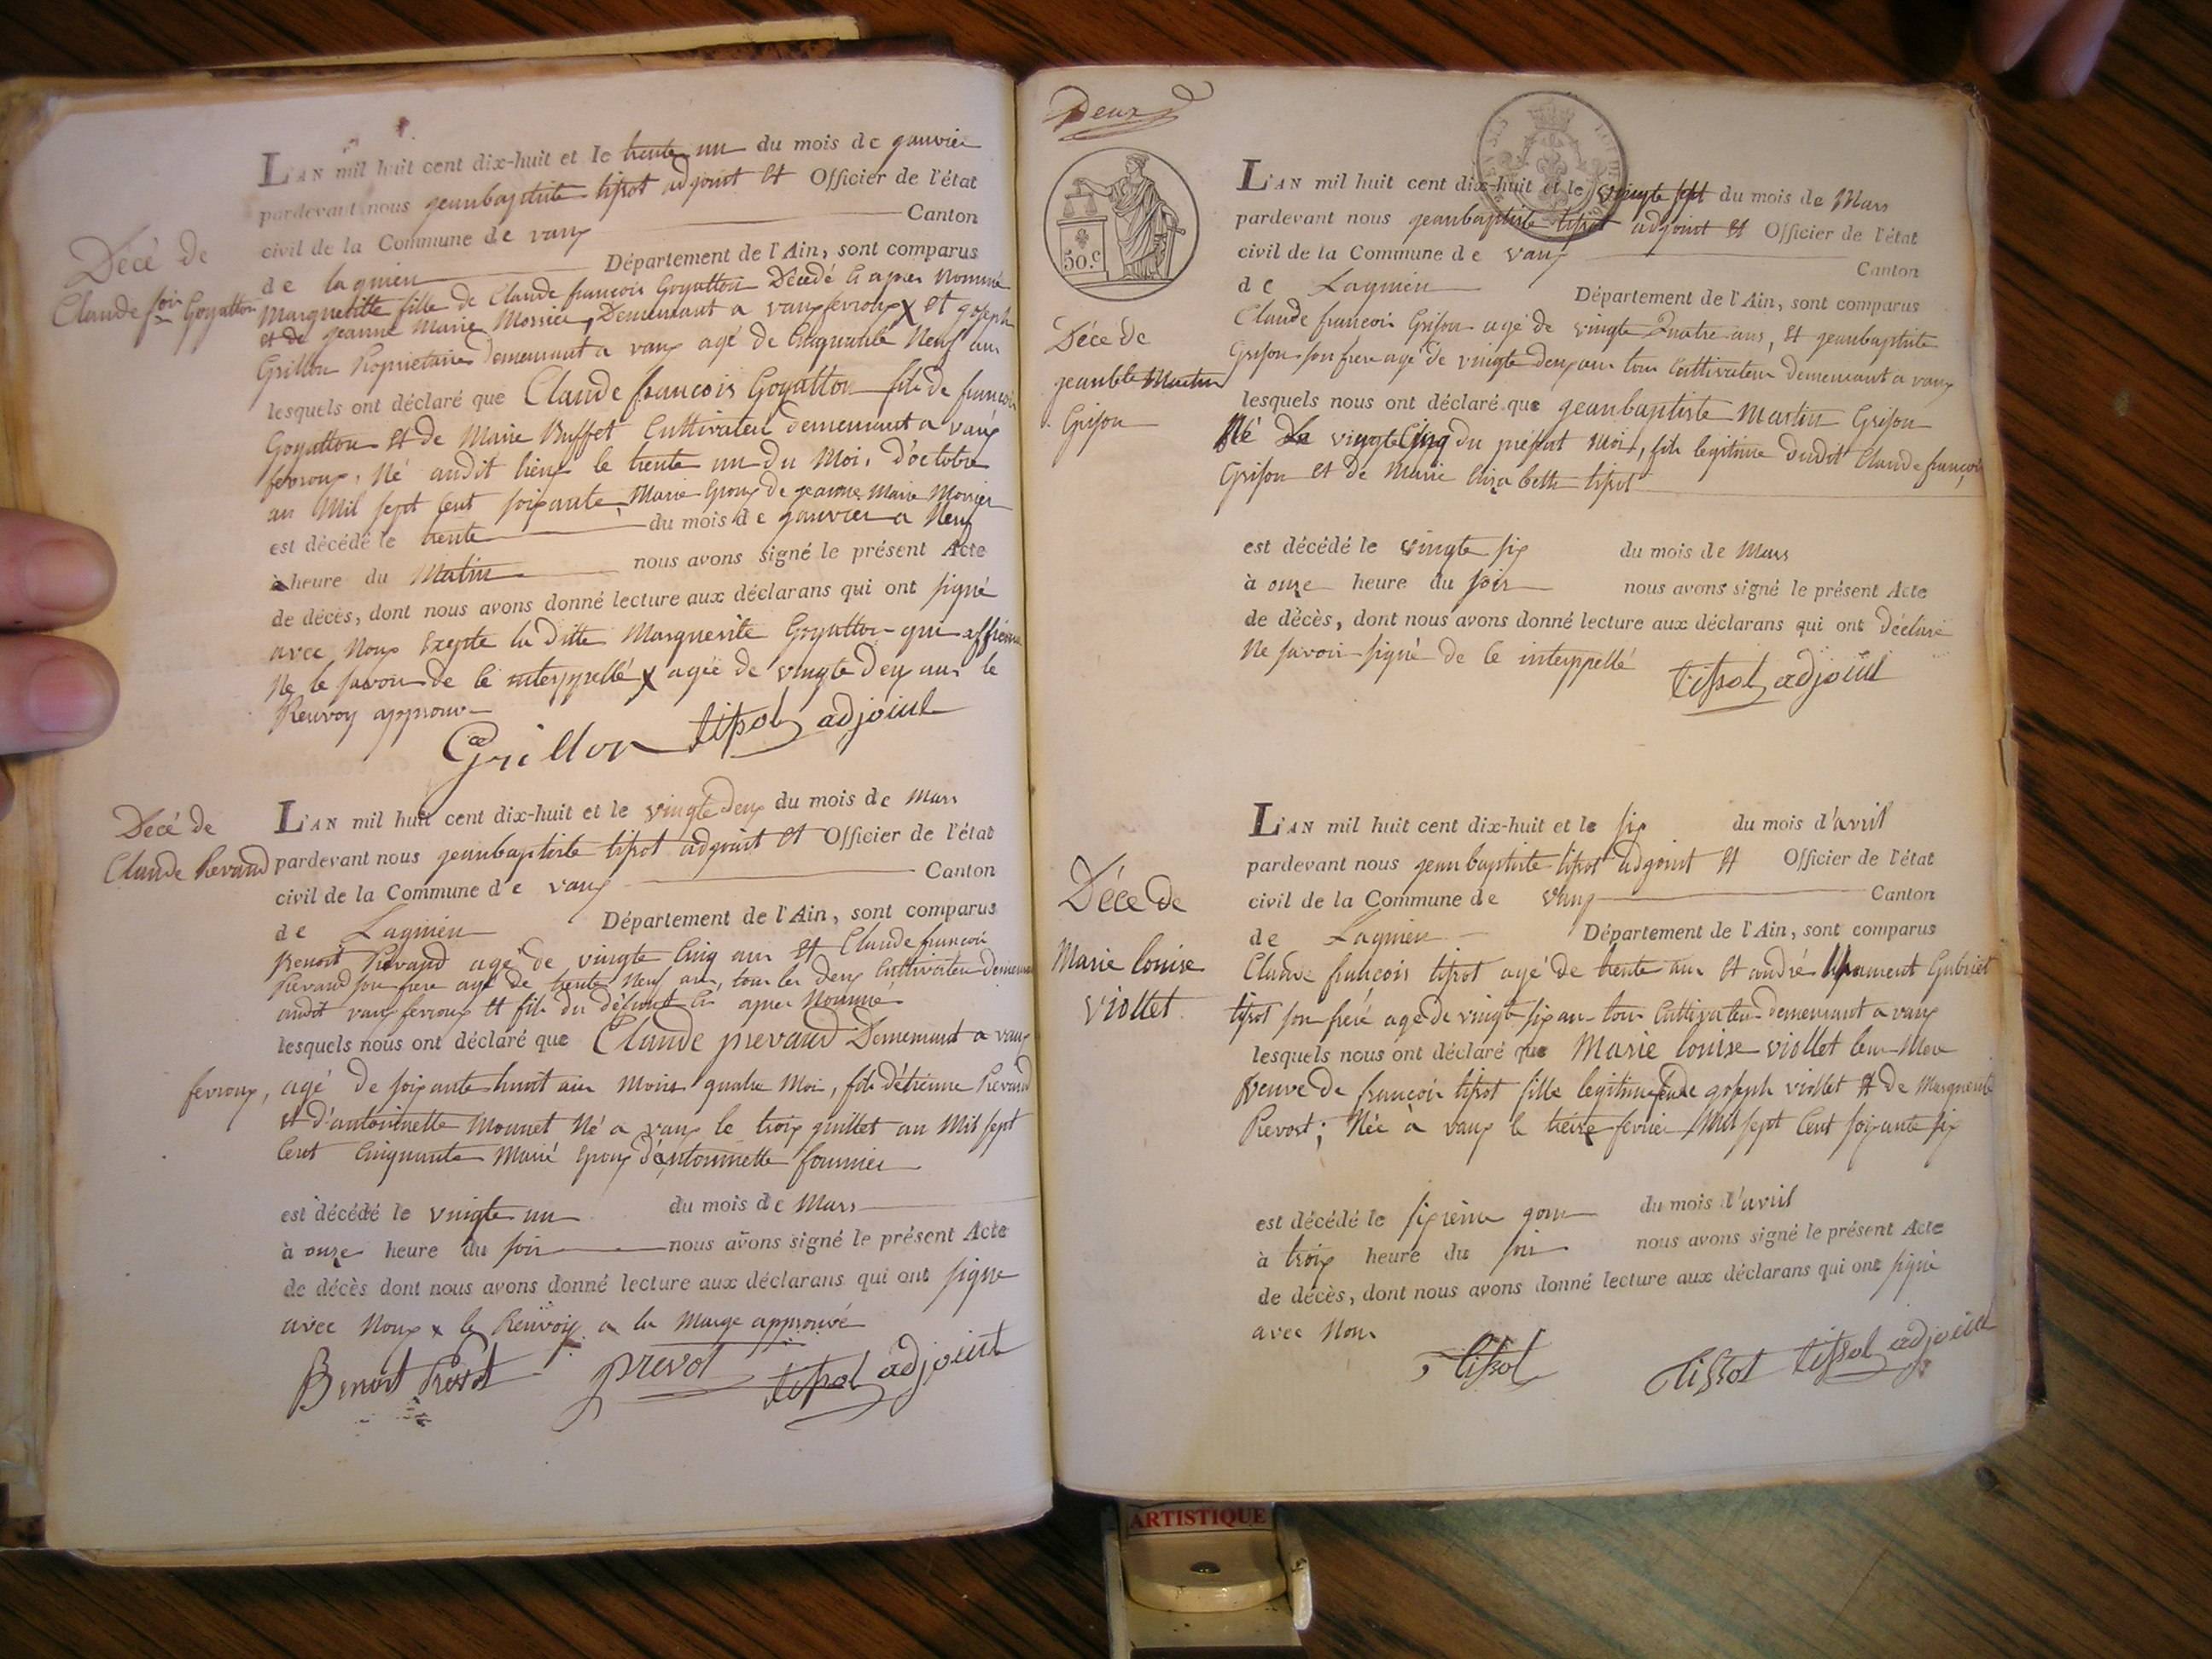 L'AN mil huit cent dix-huit et le trente un du mois de janvier
pardevant nous jeanbaptiste tissot adjoint et Officier de l'état
civil de la Commune de vaux Canton
de lagnieu Département de l'Ain, sont comparus
Décé de
Claude fois Goyatton
Margueritte fille de Claude francois Goyatton Décédé ci apres nommé
et de jeanne Marie Mossier, Demeurant a vauxfevroux X et joseph
Grillon Proprietaire demeurant a vaux agé de Cinquante Neuf ans
lesquels ont déclaré que Claude francois Goyatton fils de francois
Goyatton et de Marie Buffet Cultivateur demeurant a vaux
fevroux, Né audit lieux le trente un du Moi, d'octobre
an Mil sept Cent soixante, Marie Epoux de jeanne Marie Mossier
est décédé le trente du mois de janvier a Neuf
à heure du Matin nous avons signé le présent Acte
de décès, dont nous avons donné lecture aux déclarans qui ont signé
avec Nous Exepte la ditte Marguerite Goyatton qui
Ne le savoir de ce interppellé X agée de vingte deux ans le
Renvoy approuv
Grillon tissot adjoint
Decé de
Claude Revaud
L'AN mil huit cent dix-huit et le vingte deux du mois de Mars
pardevant nous jeanbaptiste tissot adjoint et Officier de l'état
civil de la Commune de vaux Canton
de Lagnieu Département de l'Ain, sont comparus
Benoit Prevaud agé de vingte Cinq ans et Claude francois
Prevaud son frere agé de trente Neuf ans, tous les deux Cultivateur demeurant
audit vaux fevroux et fils du défunt ci apres Nommé
lesquels nous ont déclaré que Claude prevaud Demeurant a vaux
fevroux, agé de soixante huit ans Moins quatre Moi, fils d'étienne Prevaud
et d'antoinette Monnet Né a vaux le troix juillet an Mil sept
Cent Cinquante Marié Epoux d'antoinette fournier
est décédé le vingte un du mois de Mars
à onze heure du soir nous avons signé le présent Acte
de décès dont nous avons donné lecture aux déclarans qui ont signe
avec Nous x le Renvoix a la Marge approuvé
Benoit Prevot prevot tissot adjoint
Deux
50.c
L'AN mil huit cent dix-huit et le vingte sept du mois de Mars
pardevant nous jeanbaptiste tissot adjoint et Officier de l'état
civil de la Commune de vaux
Canton
de Lagnieu Département de l'Ain, sont comparus
Décé de
jeanbte Martin
Grison
Claude francois Grison agé de vingte Quatre ans, et jeanbaptiste
Grison son frere agé de vingte deux ans tous Cultivateur demeurant a vaux
lesquels nous ont déclaré que jeanbaptiste Martin Grison
Né Le vingte Cinq du présent Mois, fils legitime dudit Claude francois
Grison et de Marie Elisabette tissot
est décédé le vingte six du mois de Mars
à onze heure du soir nous avons signé le présent Acte
de décès, dont nous avons donné lecture aux déclarans qui ont déclaré
Ne savoir signé de ce interppellé
tissot adjoint
L'AN mil huit cent dix-huit et le six du mois d'avril
pardevant nous jeanbaptiste tissot adjoint et Officier de l'état
civil de la Commune de vaux Canton
de Lagnieu Département de l'Ain, sont comparus
Déce de
Marie louise
viollet
Claude francois tissot agé de trente ans et andré Gabriel
tissot son frére agé de vingt six ans tous Cultivateur demeurant a vaux
lesquels nous ont déclaré que Marie louise viollet leur Mere
veuve de francois tissot fille legitime de joseph viollet et de Marguerite
Prevost; Née à vaux le treize fevrier Mil sept Cent soixante six
est décédé le sixieme jour du mois d'avril
à troix heure du soir nous avons signé le présent Acte
de décès, dont nous avons donné lecture aux déclarans qui ont signé
avec Nous
tissot tissot tissot adjoint
ARTISTIQUE